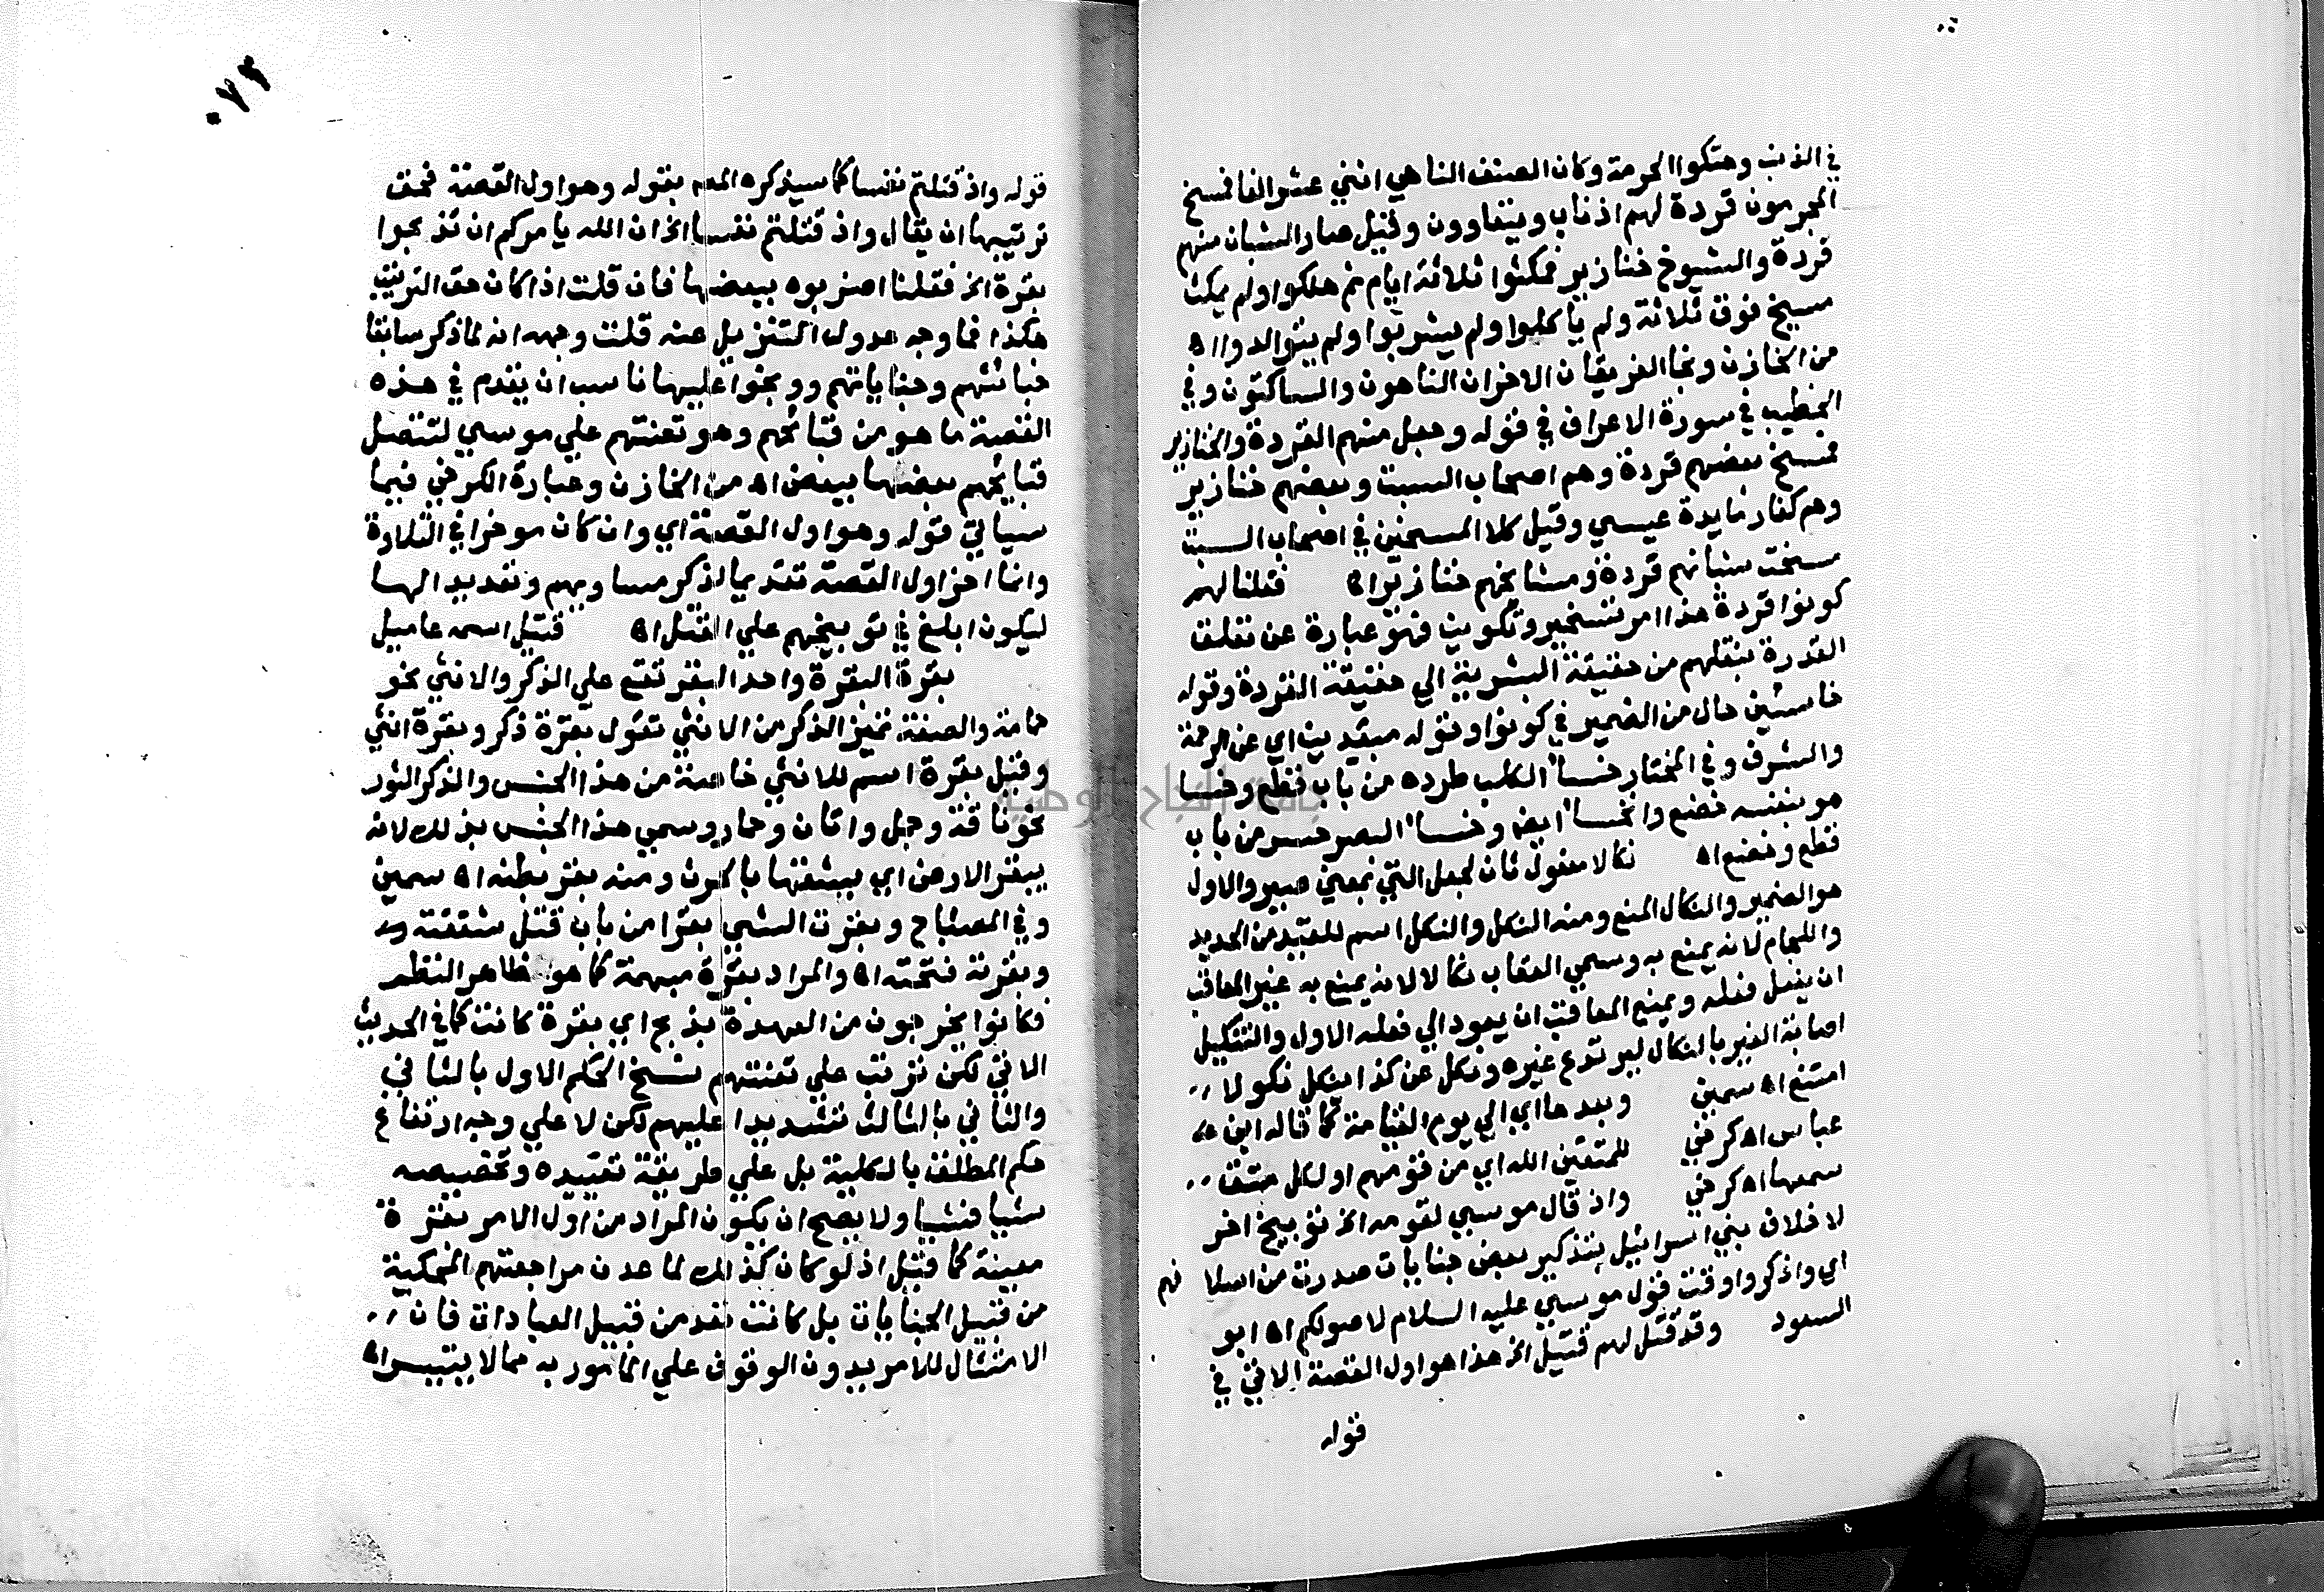 في الذنب وهتكوا الحرمة وكان الصنف الناهي اثني عشر الفا فمسخ
المجرمون قردة لهم اذناب ويتعاوون وقيل صار الشبان منهم
قردة والشيوخ خنازير فمكثوا ثلاثة ايام ثم هلكوا ولم يمكث
مسيخ فوق ثلاثة ولم ياكلوا ولم يشربوا ولم يتوالدوا اه
من الخازن ونجا الفريقان الاخران الناهون والساكتون وفي
الخطيب في سورة الاعراف في قوله وجعل منهم القردة والخنازير
فمسخ بعضهم قردة وهم اصحاب السبت وبعضهم خنازير
وهم كفار مايدة عيسي وقيل كلا المسخين في اصحاب السبت
مسخت شبانهم قردة ومشايخهم خنازير اه فقلنا لهم
كونوا قردة هذا امر تسخير وتكوين فهو عبارة عن تعلق
القدرة بنقلهم من حقيقة البشرية الي حقيقة القردة وقوله
خاسئين حال من الضمير في كونوا وقوله مبعدين اي عن الرحمة
والشرف وفي المختار خسأ الكلب طرده من باب قطع وخسا
هو بنفسه خضع وانخسأ ايضا وخسأ البصر حسر من باب
قطع وخضع اه نكالا مفعول ثان لجعل التي بمعني صير والاول
هو الضمير والنكال المنع ومنه النكل والنكل اسم للقيد من الحديد
واللجام لانه يمنع به وسمي العقاب نكالا لانه يمنع به غير المعاقب
ان يفعل فعله ويمنع المعاقب ان يعود الي فعله الاول والتنكيل
اصابة الغير بالنكال ليرتدع غيره ونكل عن كذا ينكل نكولا
امتنع اه سمين وبعدها اي الي يوم القيامة كما قاله ابن
عباس اه كرخي للمتقين الله اي من قومهم او لكل متق
سمعها اه كرخي واذ قال موسي لقومه الخ توبيخ اخر
لاخلاف بني اسرائيل بتذكير بعض جنايات صدرت من اسلافهم
اي واذكروا وقت قول موسي عليه السلام لاصولكم اه ابو
السعود وقد قتل لهم قتيل الخ هذا هو اول القصة الاتي في
قوله
٠٧٣
قوله واذ قتلتم نفسا كما سيذكره المص بقوله وهو اول القصة فحق
ترتيبها ان يقال واذ قتلتم نفسا الخ ان الله يامركم ان تذبحوا
بقرة الخ فقلنا اضربوه ببعضها فان قلت اذا كان حق الترتيب
هكذا فما وجه عدول التنزيل عنه قلت وجهه انه لما ذكر سابقا
خبائثهم وجناياتهم ووبخوا عليها ناسب ان يقدم في هذه
القصة ما هو من قبائحهم وهو تعنتهم علي موسي لتتصل
قبايحهم بعضها ببعض اه من الخازن وعبارة الكرخي فيما
سياتي قوله وهو اول القصة اي وان كان موخرا في التلاوة
وانما اخر اول القصة تقديما لذكر مساويهم وتعديد الها
ليكون ابلغ في توبيخهم علي القتل اه قتيل اسمه عاميل
بقرة البقرة واحد البقر تقع علي الذكر والانثي نحو
حمامة والصفة تميز الذكر من الانثي تقول بقرة ذكر وبقرة انثي
وقيل بقرة اسم للانثي خاصة من هذا الجنس والذكر الثور
نحو ناقة وجمل واتان وحمار وسمي هذا الجنس بذلك لانه
يبقر الارض اي يشقها بالحرث ومنه بقر بطنه اه سمين
وفي المصباح وبقرت الشي بقرا من باب قتل شققته
وبقرته فتحته اه والمراد بقرة مبهمة كما هو ظاهر النظم
فكانوا يخرجون من العهدة بذبح اي بقرة كانت كما في الحديث
الاتي لكن ترتب علي تعنتهم نسخ الحكم الاول بالثاني
والثاني بالثالث تشديدا عليهم لكن لا علي وجه ارتفاع
حكم المطلق بالكلية بل علي طريقة تقييده وتخصيصه
شيا فشيا ولا يصح ان يكون المراد من اول الامر بقرة
معينة كما قيل اذ لو كان كذلك لما عدت مراجعتهم المحكية
من قبيل الجنايات بل كانت تعد من قبيل العبادات فان
الامتثال للامر بدون الوقوف علي المامور به مما لا يتيسر اه